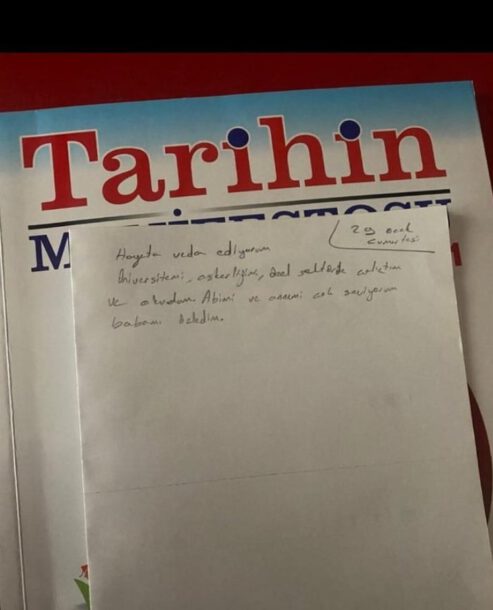 Tarihin
29 ocak
cumartesi
Hayata veda ediyorum
Üniversitemi, askerliğimi, özel sektörde çalıştım
ve okudum. Abimi ve annemi çok seviyorum
babamı özledim.